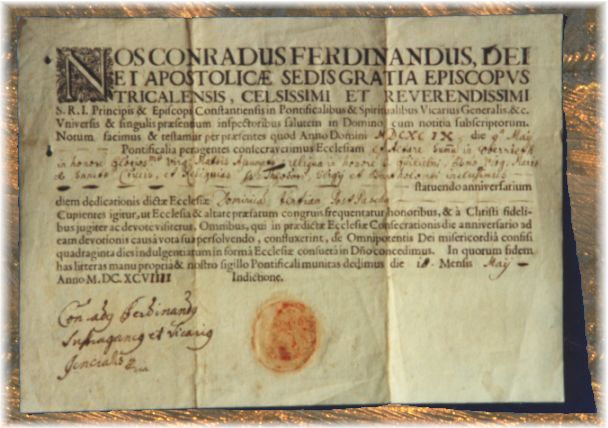 NOS CONRADUS FERDINANDUS, DEI
ET APOSTOLICÆ SEDIS GRATIA EPISCOPVS
TRICALENSIS, CELSISSIMI ET REVERENDISSIMI
S. R. I. Principis & Episcopi Constantiensis in Pontificalibus & Spiritualibus Vicarius Generalis. &c.
Vniversis & singulis præsentium inspectoribus salutem in Domino, cum notitia subscriptorum.
Notum facimus & testamur per præsentes quod Anno Domini MDCXCIX die 9 May
Pontificalia peragentes consecraverimus Ecclesiam et Altare
in honore Virg. Matris
Sanctæ Crucis, et Reliquias
statuendo anniversarium
diem dedicationis dictæ Ecclesiæ Dominica
Cupientes igitur, ut Ecclesia & altare præfatum congruis frequentatur honoribus, & à Christi fideli-
bus jugiter ac devote visitetur, Omnibus, qui in prædictæ Ecclesiæ Consecrationis die anniversario ad
eam devotionis causâ vota sua persolvendo, confluxerint, de Omnipotentis Dei misericordiâ confisi
quadraginta dies indulgentiarum in formâ Ecclesiæ consueta in Dño concedimus. In quorum fidem
has litteras manu propria & nostro sigillo Pontificali munitas dedimus die Mensis May
Anno M. DC. XCVIIII Indictione.
Conrady Ferdinandy
Suffraganeg et Vicarig
Generalis